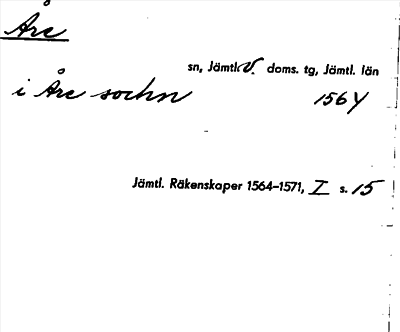 Åre
sn, Jämtl. V. doms. tg, Jämtl. län
i Åre sochn 1564
Jämtl. Räkenskaper 1564-1571, I s. 15